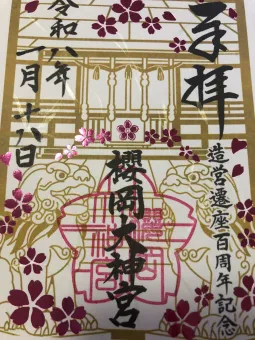 奉拝
造営遷座百周年記念
櫻岡大神宮
令和八年
一月十八日